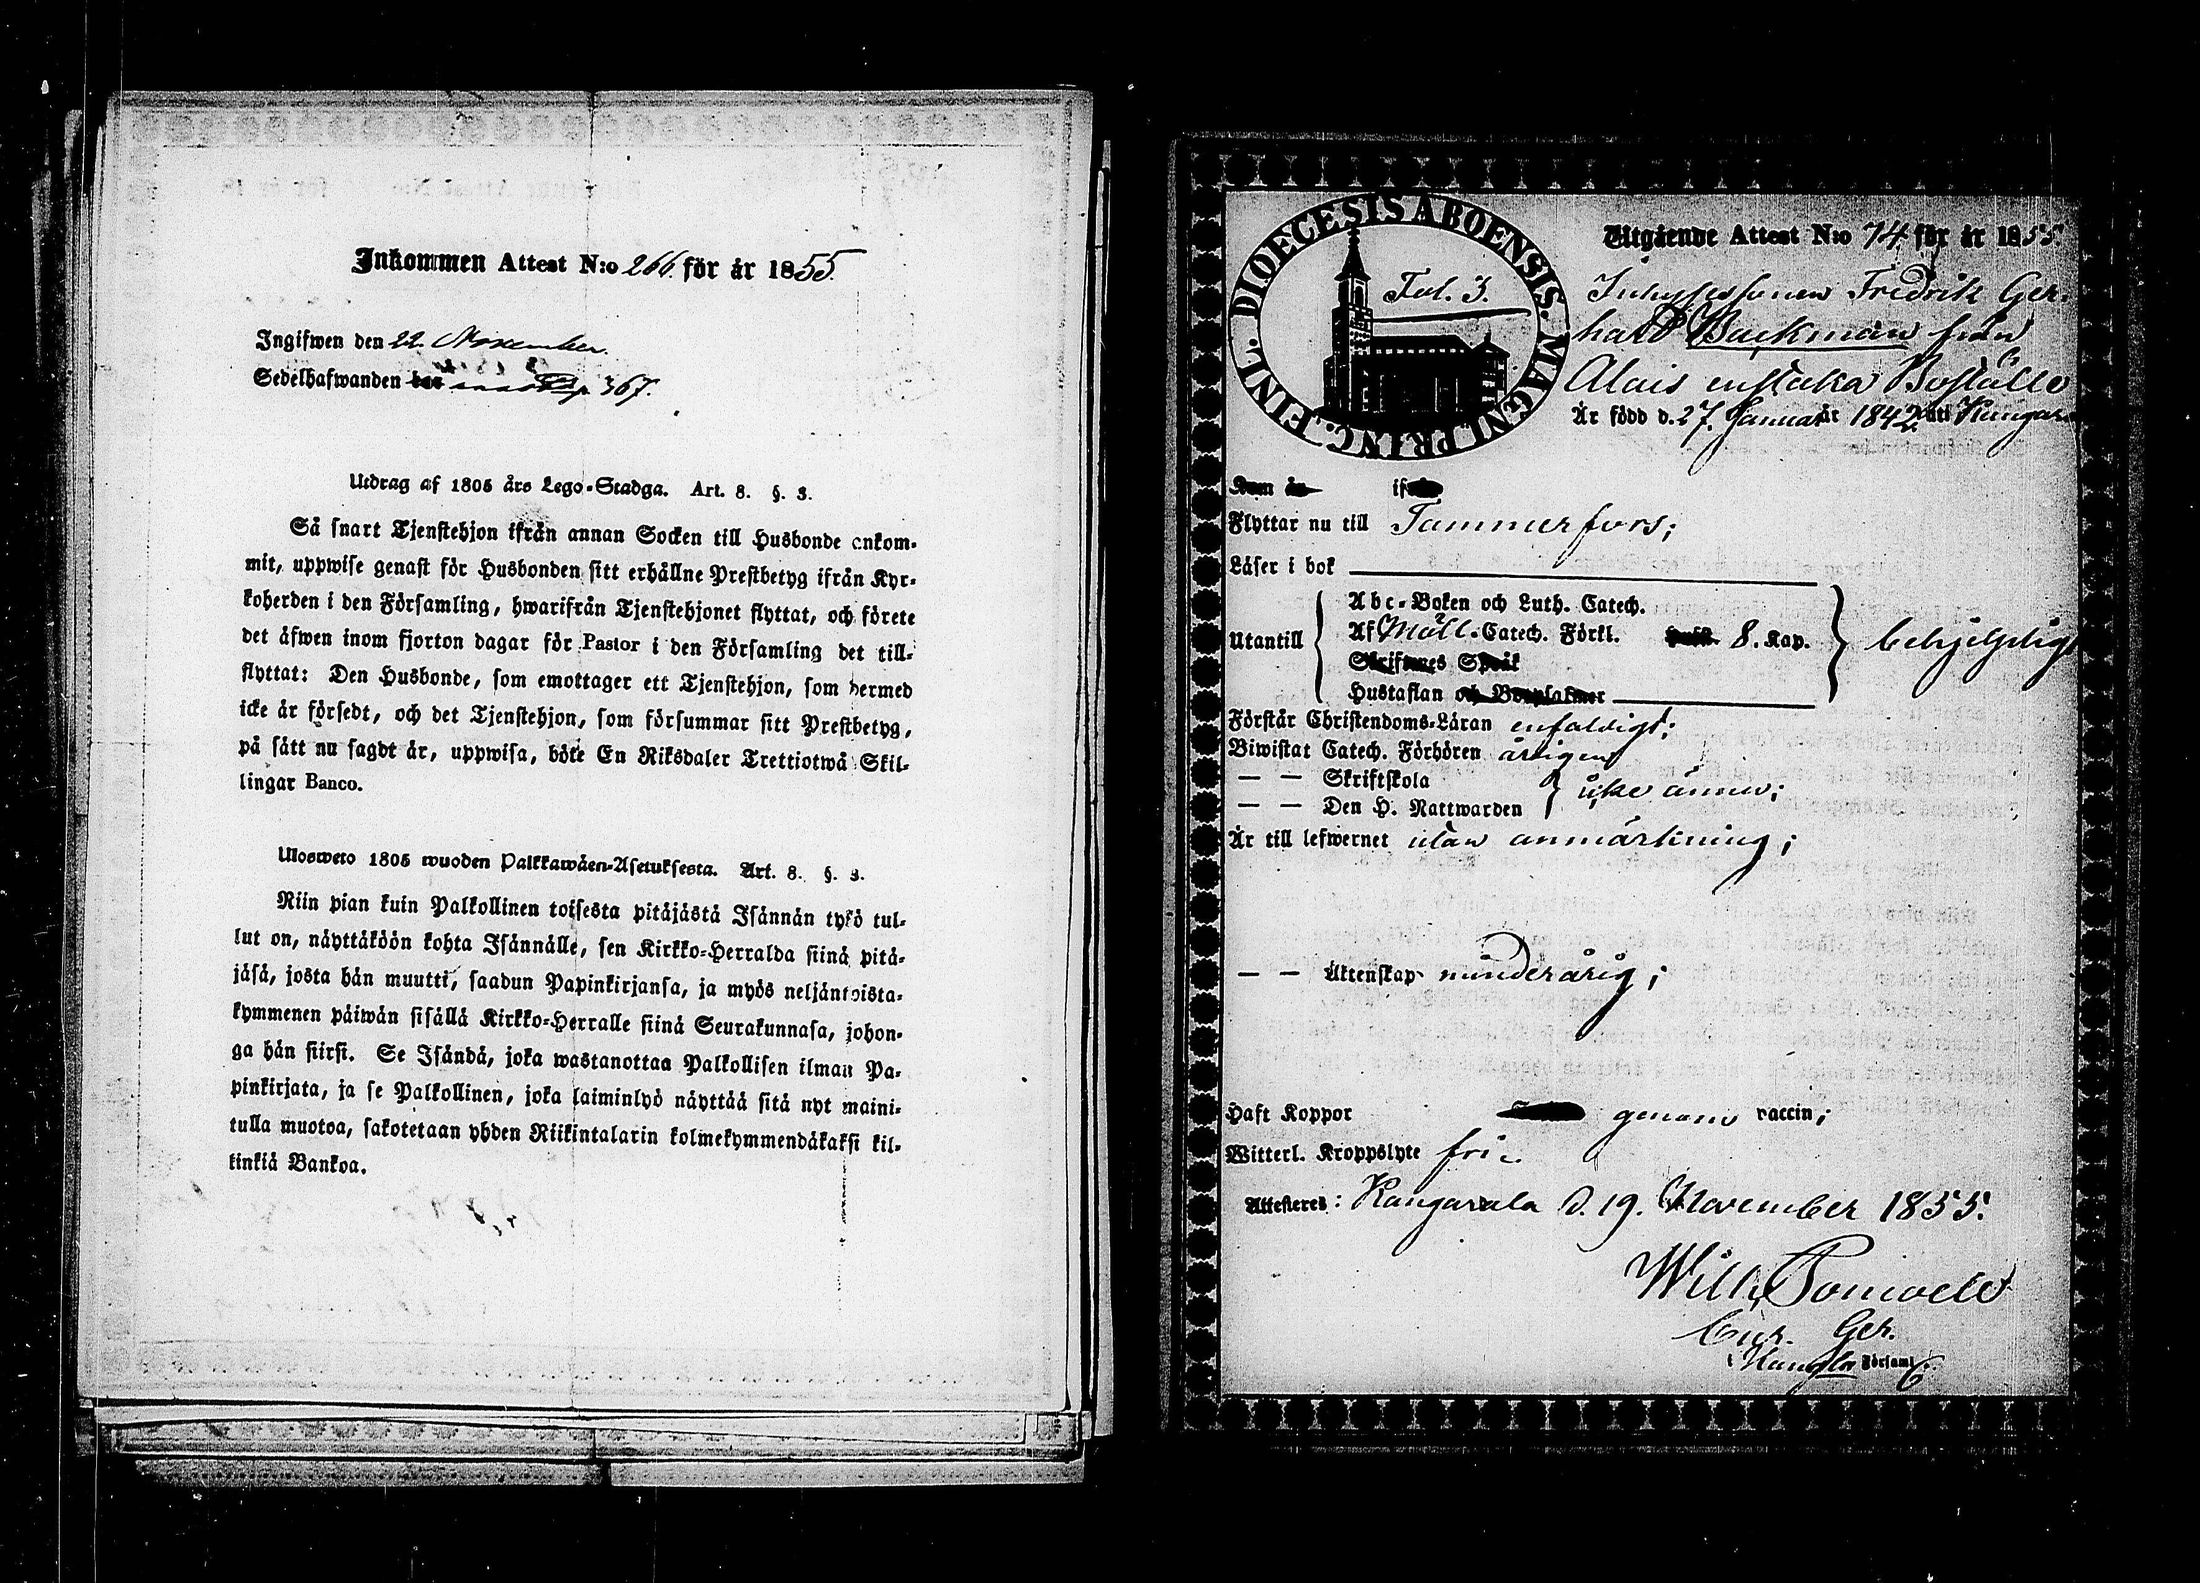 Inkommen Attest N:o 266 för år 1855.
Ingifwen den 22. November.
Sedelhafwanden 367.
Utdrag af 1805 års Lego-Stadga. Art. 8. §. 3.
Så snart Tjenstehjon ifrån annan Socken till Husbonde ankom-
mit, uppwise genast för Husbonden sitt erhållne Prestbetyg ifrån Kyr-
koherden i den Församling, hwarifrån Tjenstehjonet flyttat, och förete
det äfwen inom fjorton dagar för Pastor i den Församling det till-
flyttat: Den Husbonde, som emottager ett Tjenstehjon, som dermed
icke är försedt, och det Tjenstehjon, som försummar sitt Prestbetyg,
på sätt nu sagdt är, uppwisa, böte En Riksdaler Trettiotwå Skil-
lingar Banco.
Ulosweto 1805 wuoden Palkkawäen-Asetuksesta. Art. 8. §. 3.
Niin pian kuin Palkollinen toisesta pitäjästä Isännän tykö tul-
lut on, näyttäköön kohta Isännälle, sen Kirkko-Herralda siinä pitä-
jäsä, josta hän muutti, saadun Papinkirjansa, ja myös neljäntoista-
kymmenen päiwän sisällä Kirkko-Herralle siinä Seurakunnasa, johon-
ga hän siirsi. Se Isändä, joka wastanottaa Palkollisen ilman Pa-
pinkirjata, ja se Palkollinen, joka laiminlyö näyttää sitä nyt maini-
tulla muotoa, sakotetaan yhden Riikintalarin kolmekymmendäkaksi kil-
linkiä Bankoa.
DIOECESIS ABOENSIS. MAGNI PRINC. FINL.
Fol. 3.
Utgående Attest N:o 74 för år 1855.
Fredrik Ger-
hard Backman från
Alais enstaka Boställe
Är född d. 27. Januari år 1842 uti Kangas
Flyttar nu till Tammerfors;
Läser i bok
Utantill
Abc-Boken och Luth. Catech.
Af Möll. Catech. Förkl. 8. Kap.
Skriftenes Språk
Hustaflan och Botpsalmer
behjelpligt
Förstår Christendoms-Läran enfaldigt;
Biwistat Catech. Förhören årligen
— — Skriftskola
— — Den H. Nattwarden
icke ännu;
Är till lefwernet utan anmärkning;
— — Äktenskap minderårig;
Haft Koppor genom vaccin;
Witterl. Kroppslyte fri.
Attesteres: Kangasala d. 19. November 1855.